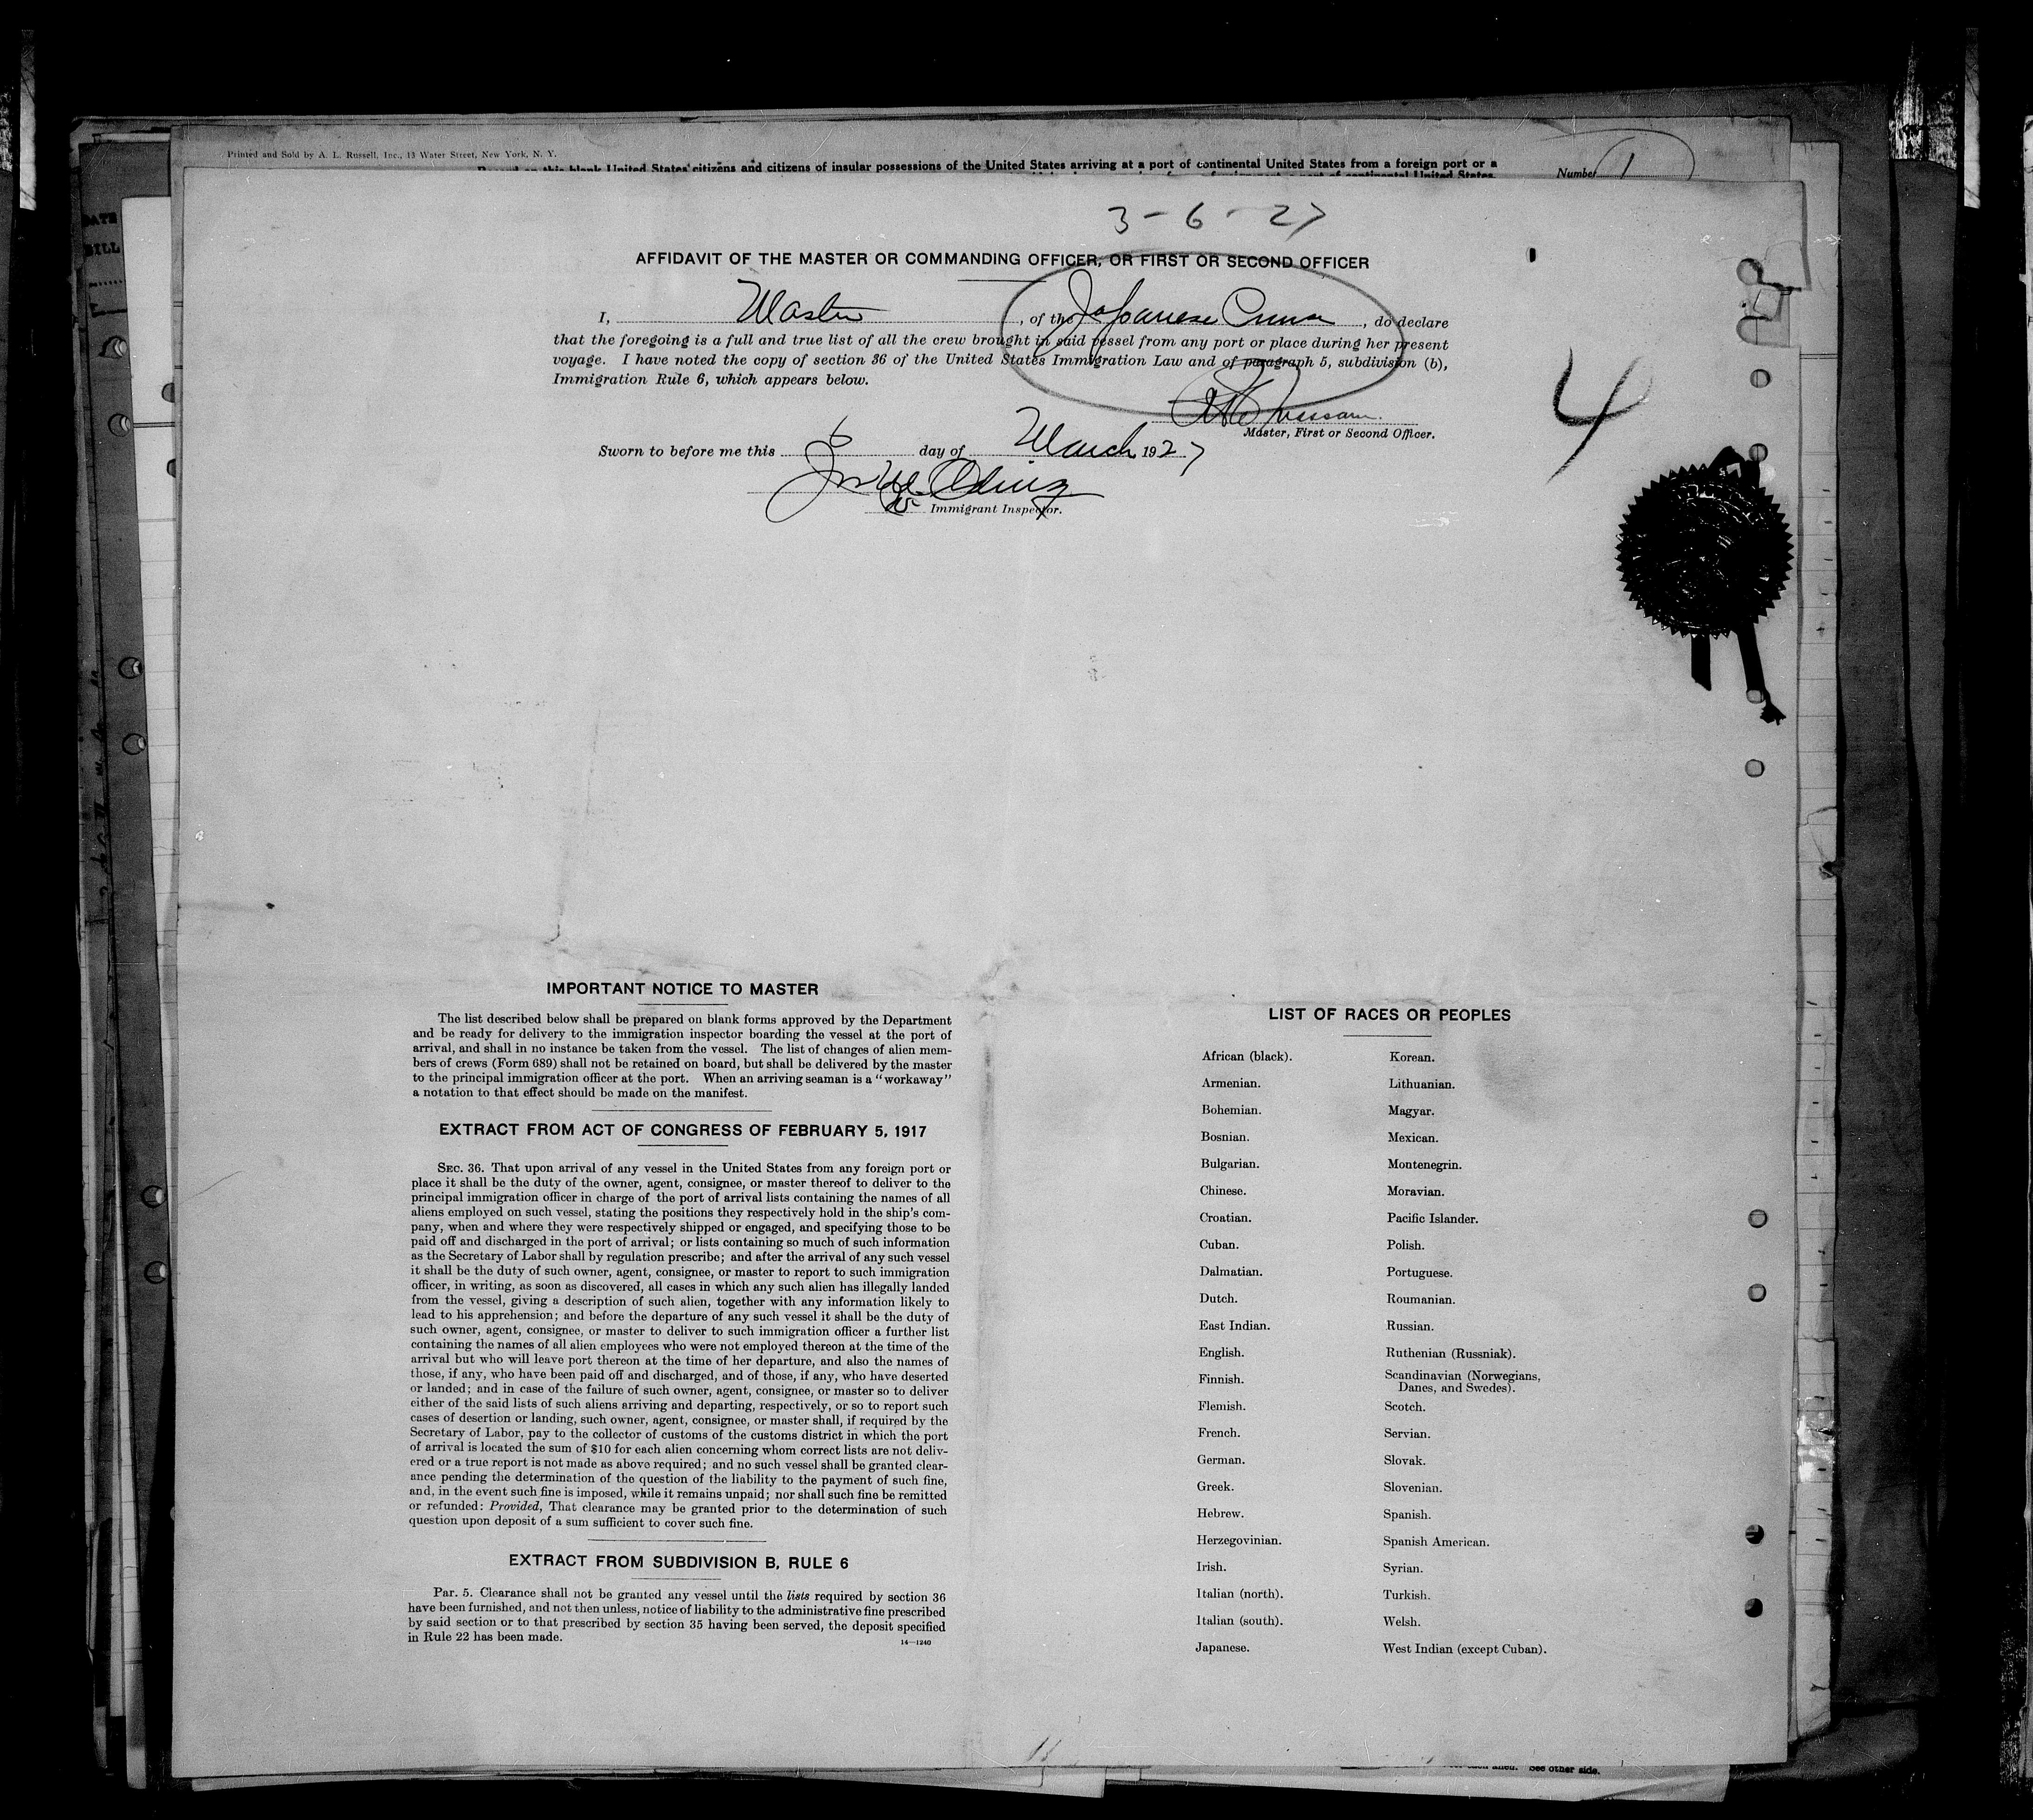 Printed and Sold by A. L. Russell, Inc., 13 Water Street, New York, N. Y.
this blank United States citizens and citizens of insular possessions of the United States arriving at a port of continental United States from a foreign port or a
Number 1
3-6-27
AFFIDAVIT OF THE MASTER OR COMMANDING OFFICER, OR FIRST OR SECOND OFFICER
I, Master, of the Japanese Prince, do declare
that the foregoing is a full and true list of all the crew brought in said vessel from any port or place during her present
voyage. I have noted the copy of section 36 of the United States Immigration Law and of paragraph 5, subdivision (b),
Immigration Rule 6, which appears below.
4
Master, First or Second Officer.
Sworn to before me this 6 day of March 1927
Immigrant Inspector.
IMPORTANT NOTICE TO MASTER
The list described below shall be prepared on blank forms approved by the Department
and be ready for delivery to the immigration inspector boarding the vessel at the port of
arrival, and shall in no instance be taken from the vessel. The list of changes of alien mem-
bers of crews (Form 689) shall not be retained on board, but shall be delivered by the master
to the principal immigration officer at the port. When an arriving seaman is a "workaway"
a notation to that effect should be made on the manifest.
EXTRACT FROM ACT OF CONGRESS OF FEBRUARY 5, 1917
SEC. 36. That upon arrival of any vessel in the United States from any foreign port or
place it shall be the duty of the owner, agent, consignee, or master thereof to deliver to the
principal immigration officer in charge of the port of arrival lists containing the names of all
aliens employed on such vessel, stating the positions they respectively hold in the ship's com-
pany, when and where they were respectively shipped or engaged, and specifying those to be
paid off and discharged in the port of arrival; or lists containing so much of such information
as the Secretary of Labor shall by regulation prescribe; and after the arrival of any such vessel
it shall be the duty of such owner, agent, consignee, or master to report to such immigration
officer, in writing, as soon as discovered, all cases in which any such alien has illegally landed
from the vessel, giving a description of such alien, together with any information likely to
lead to his apprehension; and before the departure of any such vessel it shall be the duty of
such owner, agent, consignee, or master to deliver to such immigration officer a further list
containing the names of all alien employees who were not employed thereon at the time of the
arrival but who will leave port thereon at the time of her departure, and also the names of
those, if any, who have been paid off and discharged, and of those, if any, who have deserted
or landed; and in case of the failure of such owner, agent, consignee, or master so to deliver
either of the said lists of such aliens arriving and departing, respectively, or so to report such
cases of desertion or landing, such owner, agent, consignee, or master shall, if required by the
Secretary of Labor, pay to the collector of customs of the customs district in which the port
of arrival is located the sum of $10 for each alien concerning whom correct lists are not deliv-
ered or a true report is not made as above required; and no such vessel shall be granted clear-
ance pending the determination of the question of the liability to the payment of such fine,
and, in the event such fine is imposed, while it remains unpaid; nor shall such fine be remitted
or refunded: Provided, That clearance may be granted prior to the determination of such
question upon deposit of a sum sufficient to cover such fine.
EXTRACT FROM SUBDIVISION B, RULE 6
Par. 5. Clearance shall not be granted any vessel until the lists required by section 36
have been furnished, and not then unless, notice of liability to the administrative fine prescribed
by said section or to that prescribed by section 35 having been served, the deposit specified
in Rule 22 has been made.
14—1240
LIST OF RACES OR PEOPLES
African (black). Korean.
Armenian. Lithuanian.
Bohemian. Magyar.
Bosnian. Mexican.
Bulgarian. Montenegrin.
Chinese. Moravian.
Croatian. Pacific Islander.
Cuban. Polish.
Dalmatian. Portuguese.
Dutch. Roumanian.
East Indian. Russian.
English. Ruthenian (Russniak).
Finnish. Scandinavian (Norwegians,
Danes, and Swedes).
Flemish. Scotch.
French. Servian.
German. Slovak.
Greek. Slovenian.
Hebrew. Spanish.
Herzegovinian. Spanish American.
Irish. Syrian.
Italian (north). Turkish.
Italian (south). Welsh.
Japanese. West Indian (except Cuban).
See other side.